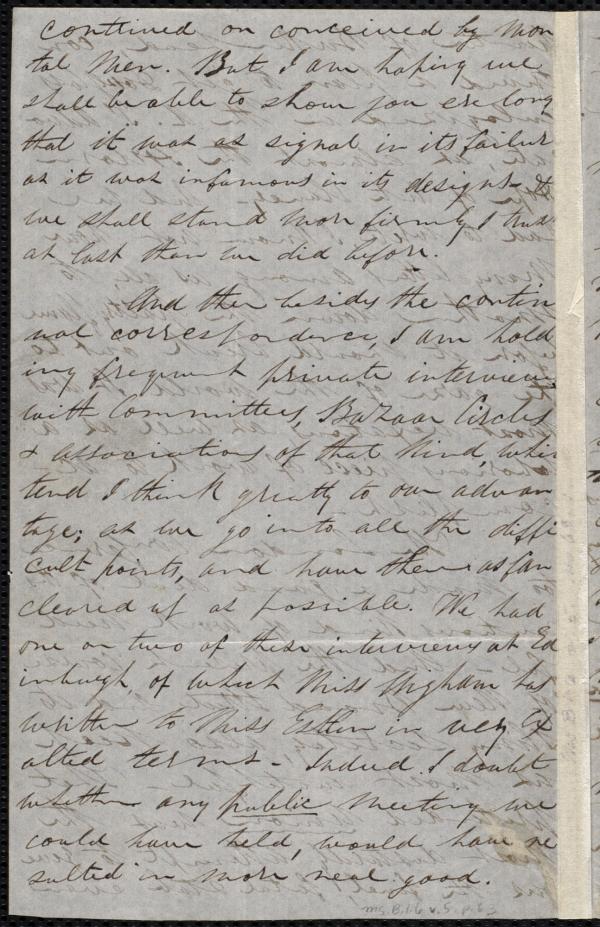 continued or conceived by mor
tal men. But I am hoping we
shall be able to show you ere long
that it was as signal in its failure
as it was infamous in its designs - &
we shall stand more firmly I trust
at last than we did before.
And then besides the contin
ual correspondence, I am hold
ing frequent private interviews
with Committees, Bazaar Circles
& associations of that kind, which
tend I think greatly to our advan
tage; as we go into all the diffi
cult points, and have them as far
cleared up as possible. We had
one or two of these interviews at Ed
inburgh, of which Miss Wigham has
written to Miss Estlin in very ex
alted terms - Indeed I doubt
whether any public meeting we
could have held, would have re
sulted in more real good.
Ms. B.1.6 v.5, p.63